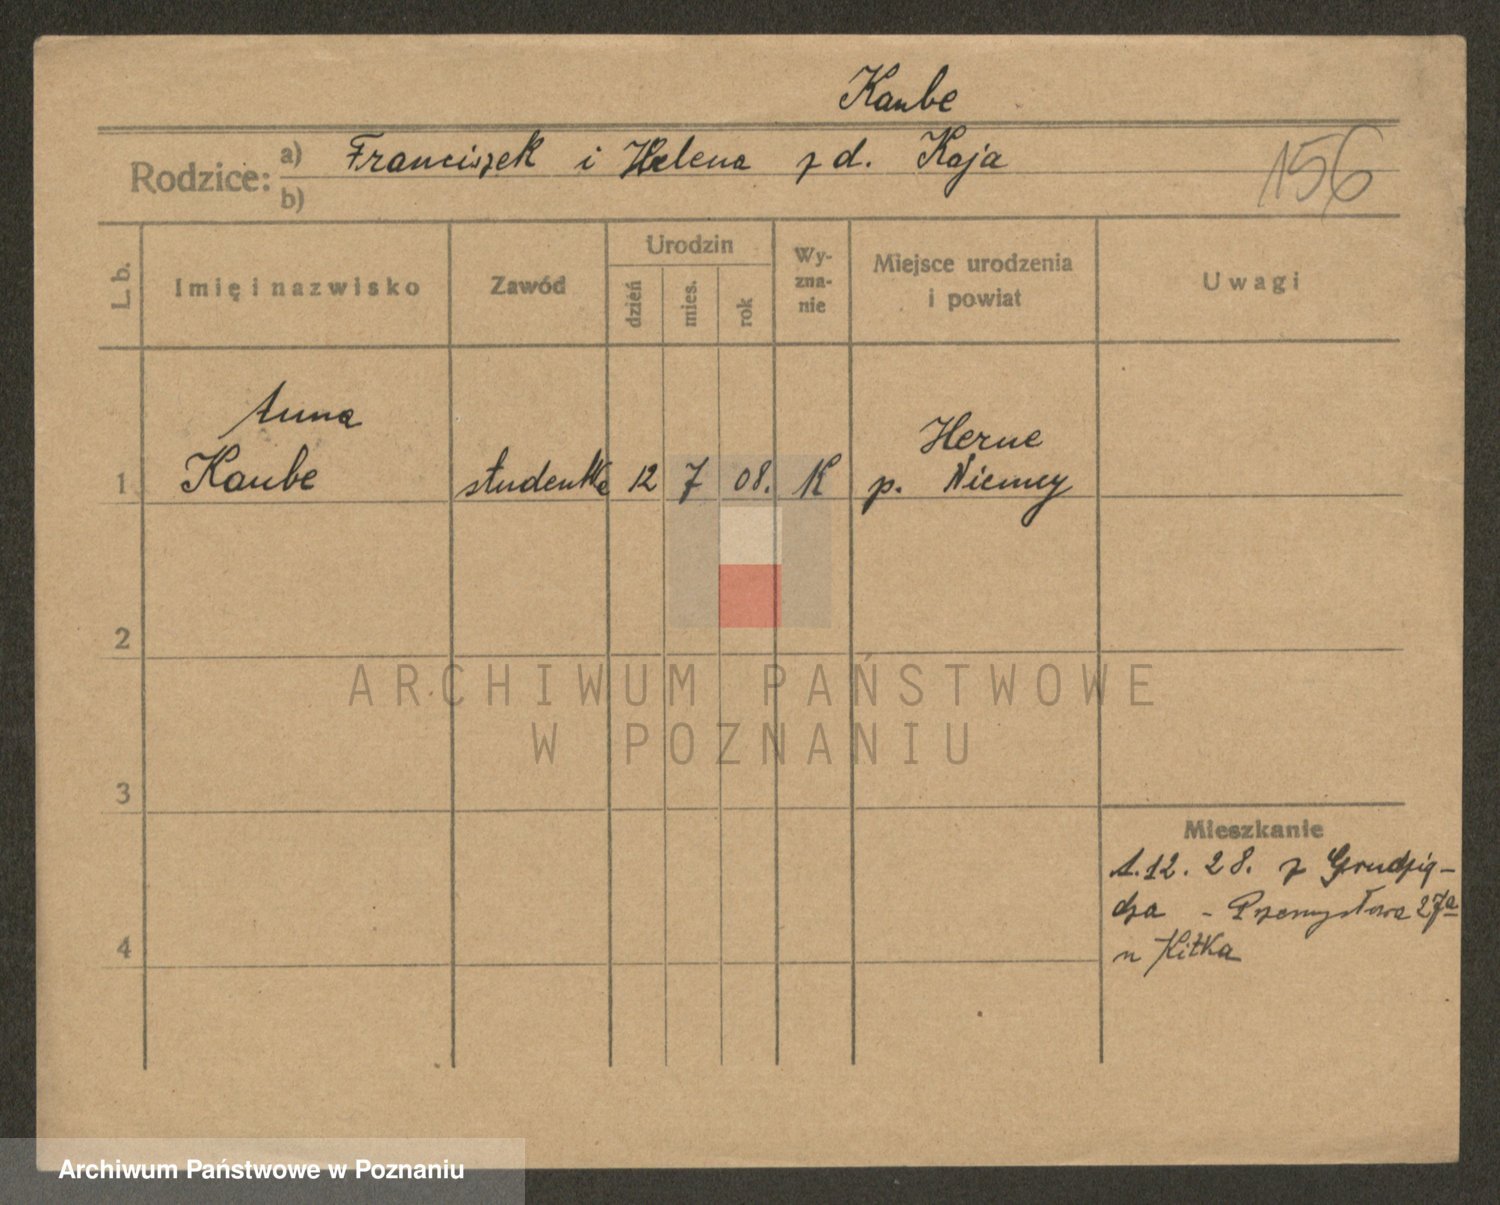 Kaube
Rodzice: a) Franciszek i Helena z d. Kaja
b)
156
L. b.
Imię i nazwisko
Zawód
Urodzin
dzień
mies.
rok
Wy-
zna-
nie
Miejsce urodzenia
i powiat
Uwagi
Anna
Herne
1 Kaube studentka 12 7 08. K p. Niemcy
2
ARCHIWUM PAŃSTWOWE
W POZNANIU
3
Mieszkanie
1.12.28. z Grudzią-
dza - Przemysłowa 27a
u Kitka
4
Archiwum Państwowe w Poznaniu